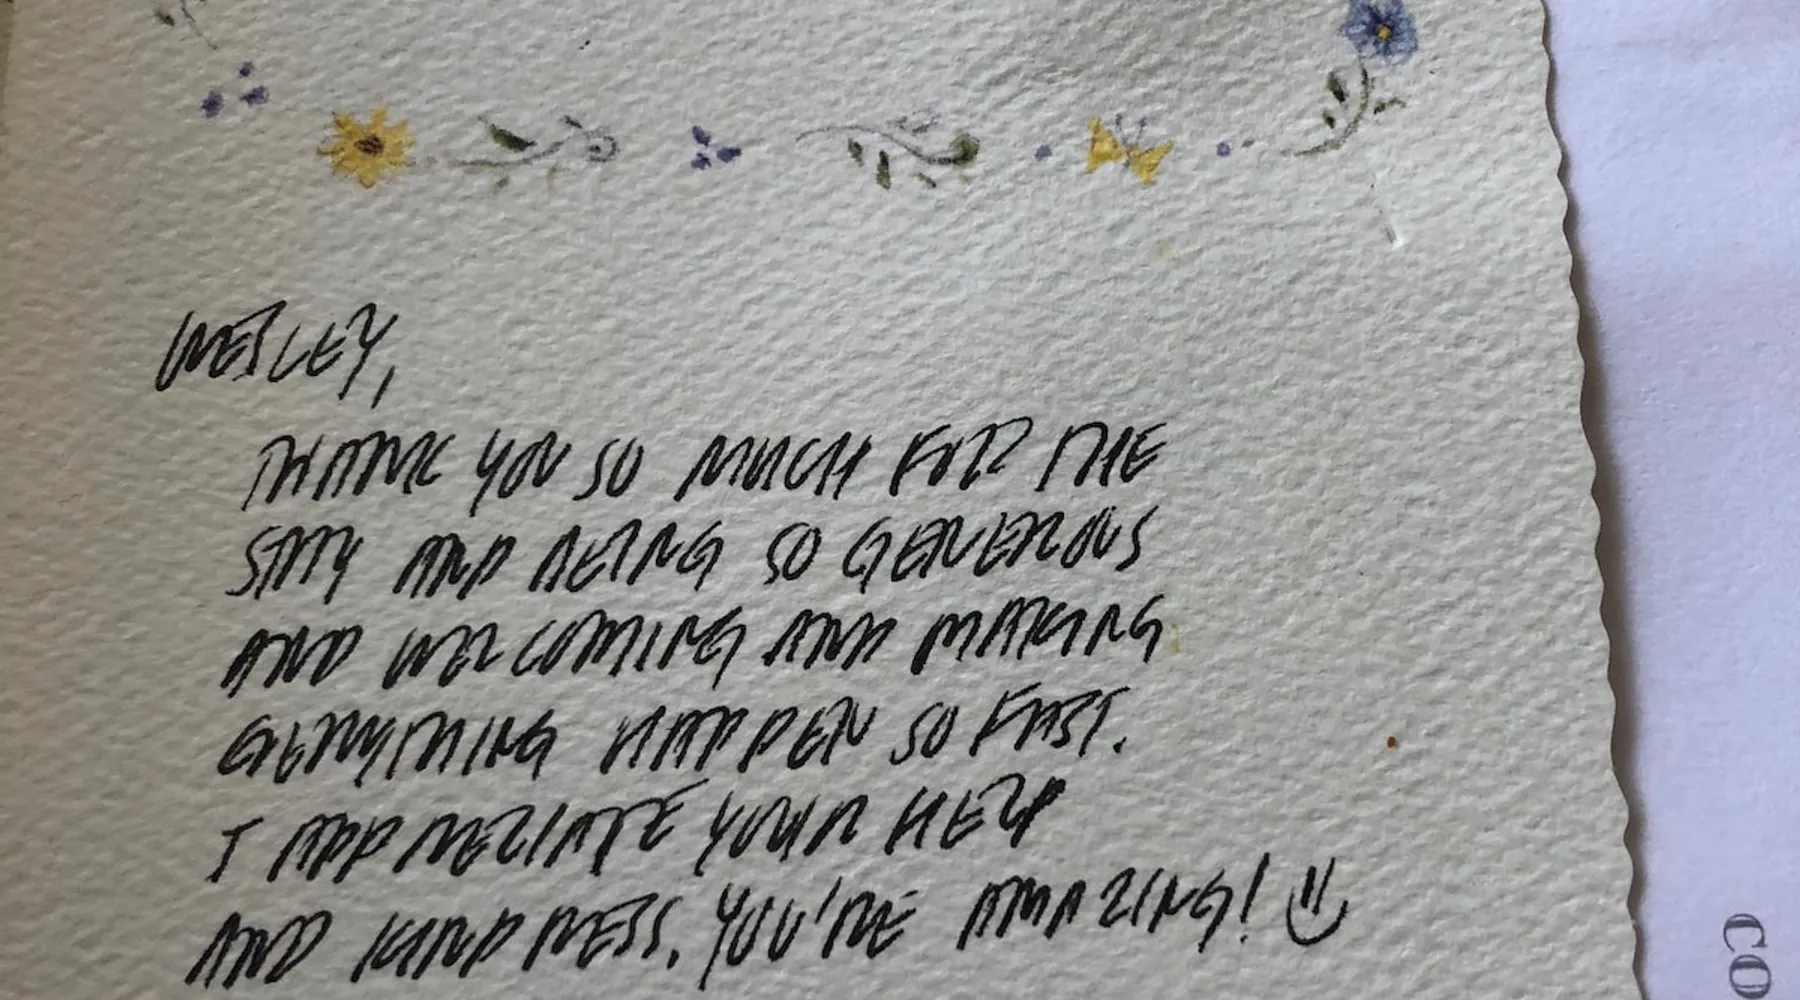 WESLEY,
THANK YOU SO MUCH FOR THE
STAY AND BEING SO GENEROUS
AND WELCOMING AND MAKING
EVERYTHING HAPPEN SO FAST.
I APPRECIATE YOUR HELP
AND KINDNESS. YOU'RE AMAZING! :)
CO